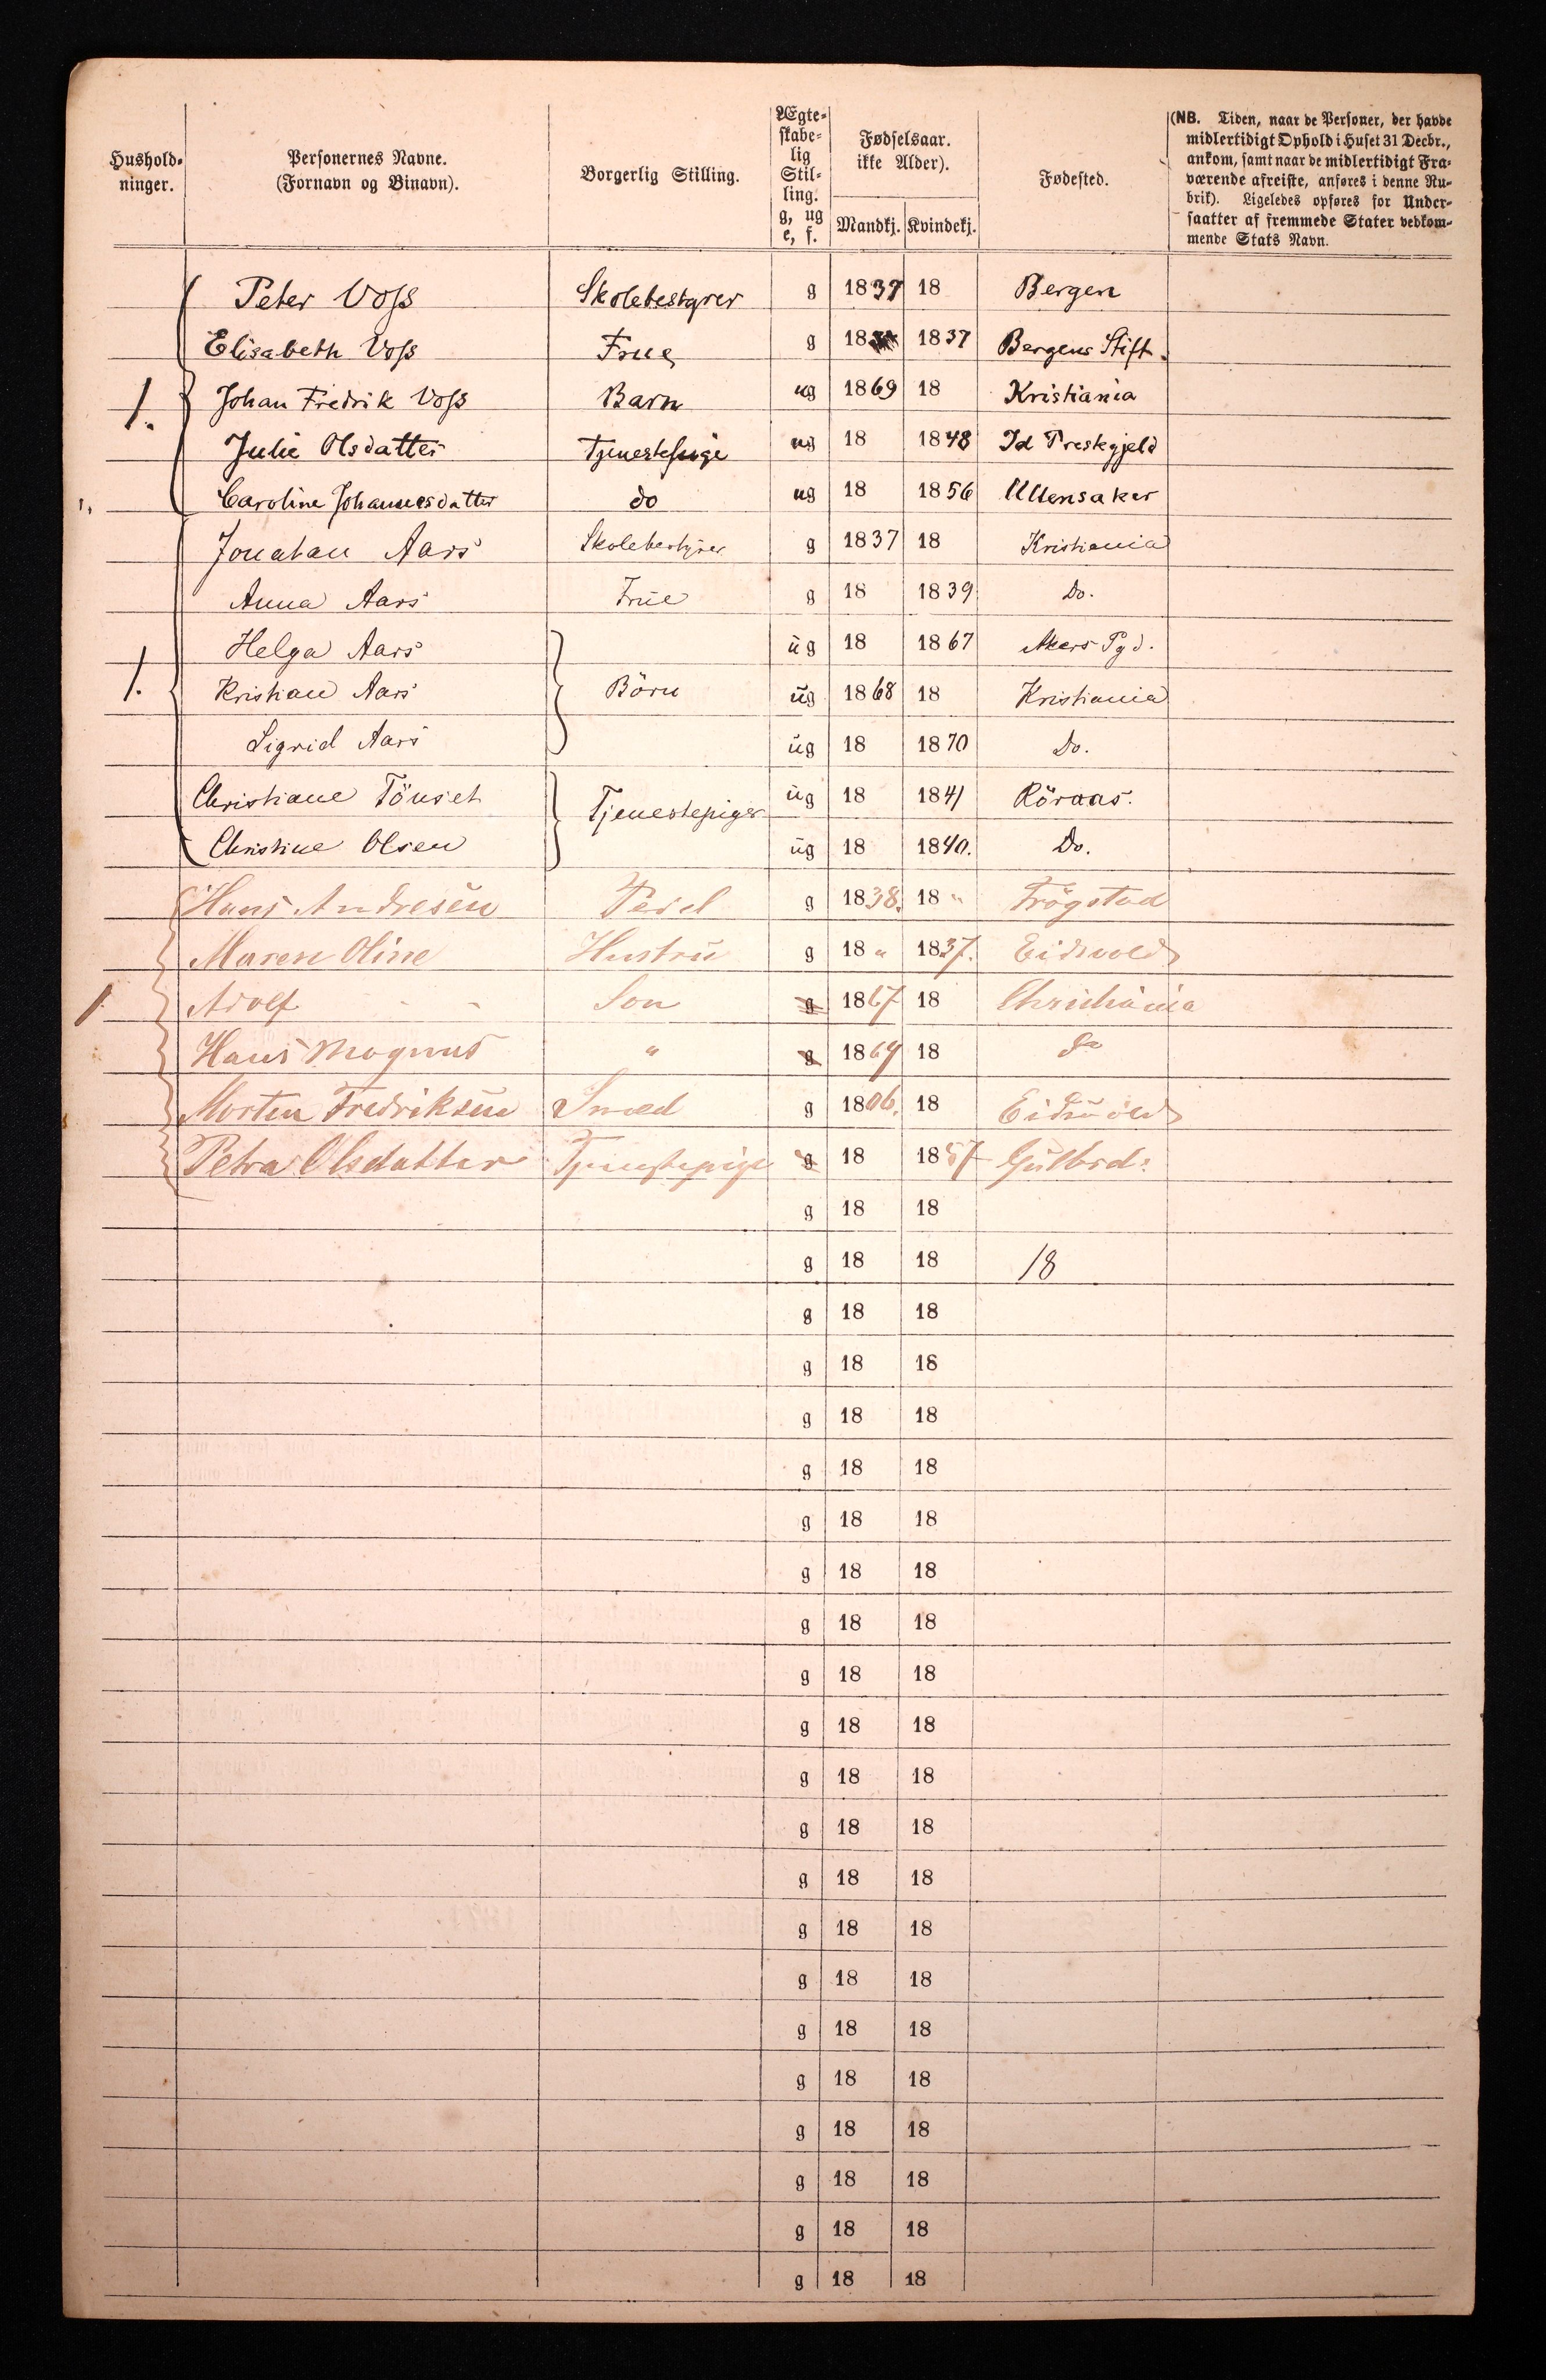 Hushold-
ninger.
Personernes Navne.
(Fornavn og Binavn).
Borgerlig Stilling.
Ægte-
skabe-
lig
Stil-
ling.
g, ug
e, f.
Fødselsaar.
ikke Alder).
Mandkj. Kvindekj.
Fødested.
(NB. Tiden, naar de Personer, der havde
midlertidigt Ophold i Huset 31 Decbr.,
ankom, samt naar de midlertidigt Fra-
værende afreiste, anføres i denne Ru-
brik). Ligeledes opføres for Under-
saatter af fremmede Stater vedkom-
mende Stats Navn.
Peter Voss Skolebestyrer g 1837 18 Bergen
Elisabeth Voss Frue g 18 1837 Bergens Stift.
1. Johan Fredrik Voss Barn ug 1869 18 Kristiania
Julie Olsdatter Tjenestepige ug 18 1848 Id Prestegjeld
Caroline Johannesdatter do ug 18 1856 Ullensaker
Jonathan Aars Skolebestyrer g 1837 18 Kristiania
Anna Aars Frue g 18 1839 Do.
Helga Aars ug 18 1867 Akers Pgd.
1. Kristian Aars Börn ug 1868 18 Kristiania
Sigrid Aars ug 18 1870 Do.
Christiane Tönset Tjenestepiger ug 18 1841 Röraas.
Christine Olsen ug 18 1840. Do.
Hans Andresen Pedel g 1838. 18 " Trögstad
Maren Oline Hustru g 18 " 1837. Eidsvold
1 Adolf - - Son g 1867 18 Christiania
Hans Magnus " g 1869 18 do
Morten Fredriksen Smed g 1806. 18 Eidsvold
Petra Olsdatter Tjenestepige g 18 1857 Gulbrd:
g 18 18
g 18 18 18
g 18 18
g 18 18
g 18 18
g 18 18
g 18 18
g 18 18
g 18 18
g 18 18
g 18 18
g 18 18
g 18 18
g 18 18
g 18 18
g 18 18
g 18 18
g 18 18
g 18 18
g 18 18
g 18 18
g 18 18